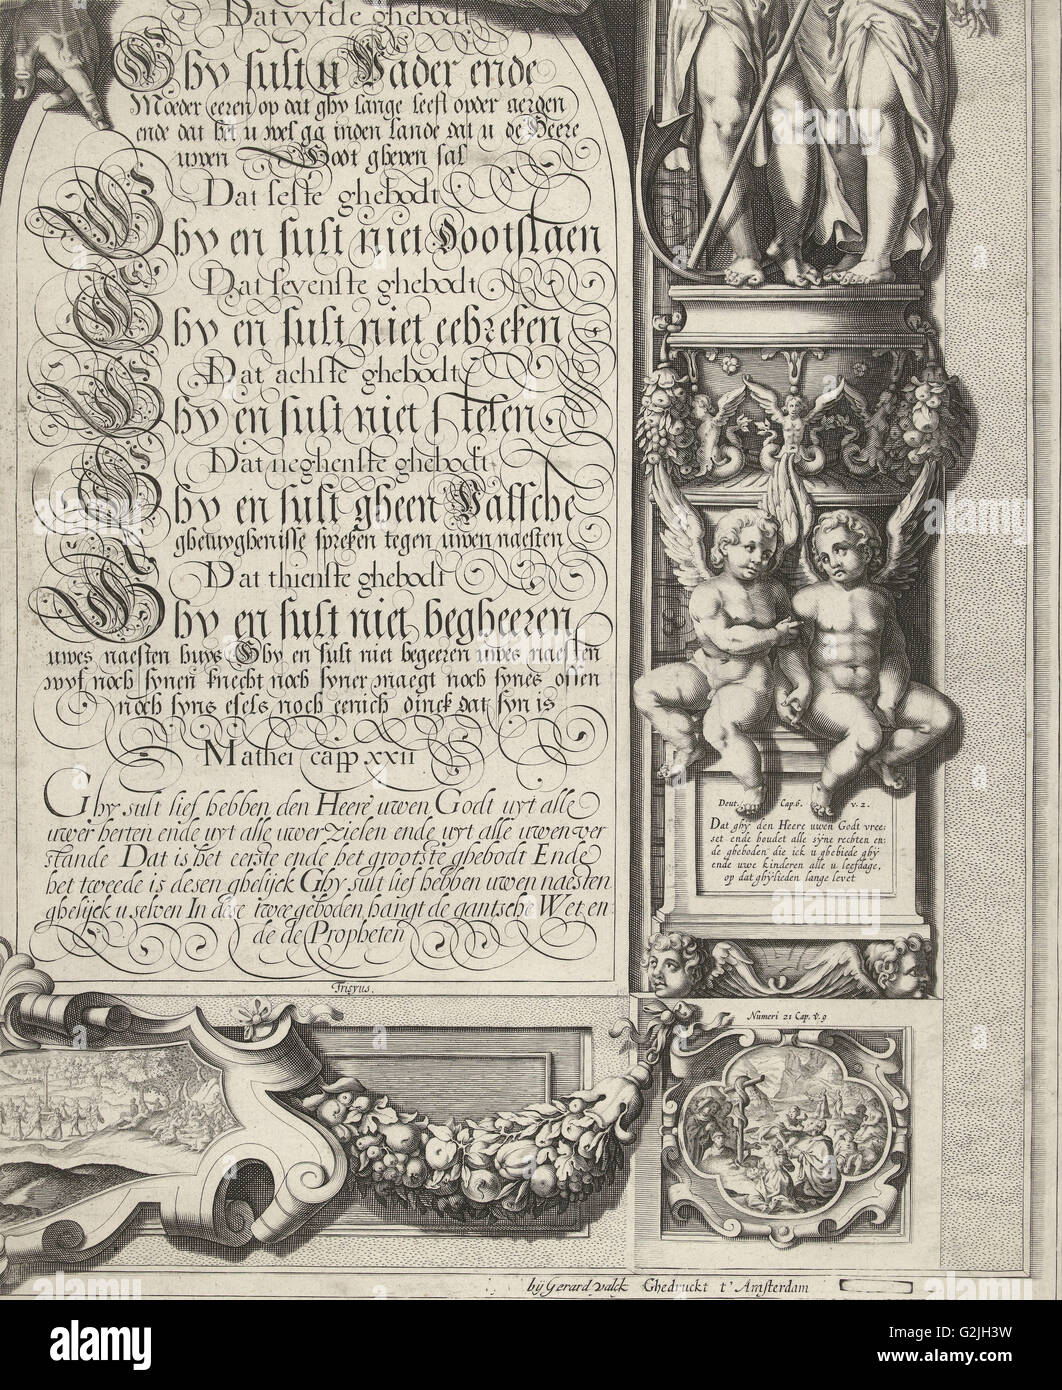 Dat vyfde ghebodt
Ghy sult u Vader ende
Moeder eeren op dat ghy lange leeft opder aerden
ende dat het u wel ga inden lande dat u de Heere
uwen Godt gheven sal
Dat seste ghebodt
Ghy en sult niet Dootslaen
Dat sevenste ghebodt
Ghy en sult niet eebreken
Dat achste ghebodt
Ghy en sult niet stelen
Dat neghenste ghebodt
Ghy en sult gheen Valsche
ghetuyghenisse spreken tegen uwen naesten
Dat thienste ghebodt
Ghy en sult niet begheeren
uwes naesten huys Ghy en sult niet begeeren uwes naesten
wyf noch synen knecht noch syner maegt noch synes ossen
noch syns esels noch eenich dinck dat syn is
Mathei capp. xxii
Ghy sult lief hebben den Heere uwen Godt uyt alle
uwer herten ende uyt alle uwer zielen ende uyt alle uwen ver
stande Dat is het eerste ende het grootste ghebodt Ende
het tweede is desen ghelijck Ghy sult lief hebben uwen naesten
ghelijck u selven In dese twee geboden hangt de gantsche Wet en
de de Propheten
Frisyus.
Deut. Cap. 6. v. 2.
Dat ghy den Heere uwen Godt vree=
set ende houdet alle syne rechten en:
de gheboden die ick u ghebiede ghy
ende uwe kinderen alle u leefdage,
op dat ghylieden lange levet
Numeri 21 Cap. v. 9
bij Gerard Valck Ghedruckt t' Amsterdam
alamy
Image ID: G2JH3W
www.alamy.com